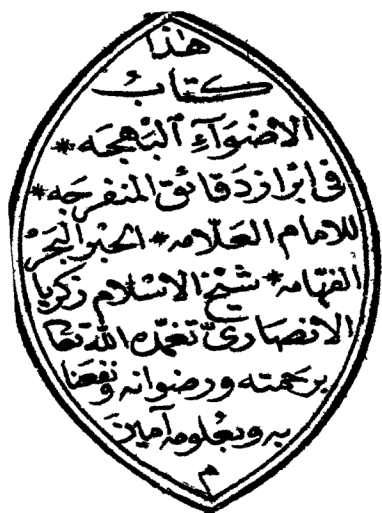 هذا
كتاب
الاضوآء البهجه *
فى ابراز دقائق المنفرجه *
للامام العلامه * الحبر البحر
الفهامه * شيخ الاسلام زكريا
الانصارىّ تغمّده الله تعا
برحمته ورضوانه ونفعنا
به وبعلومه آمين
م